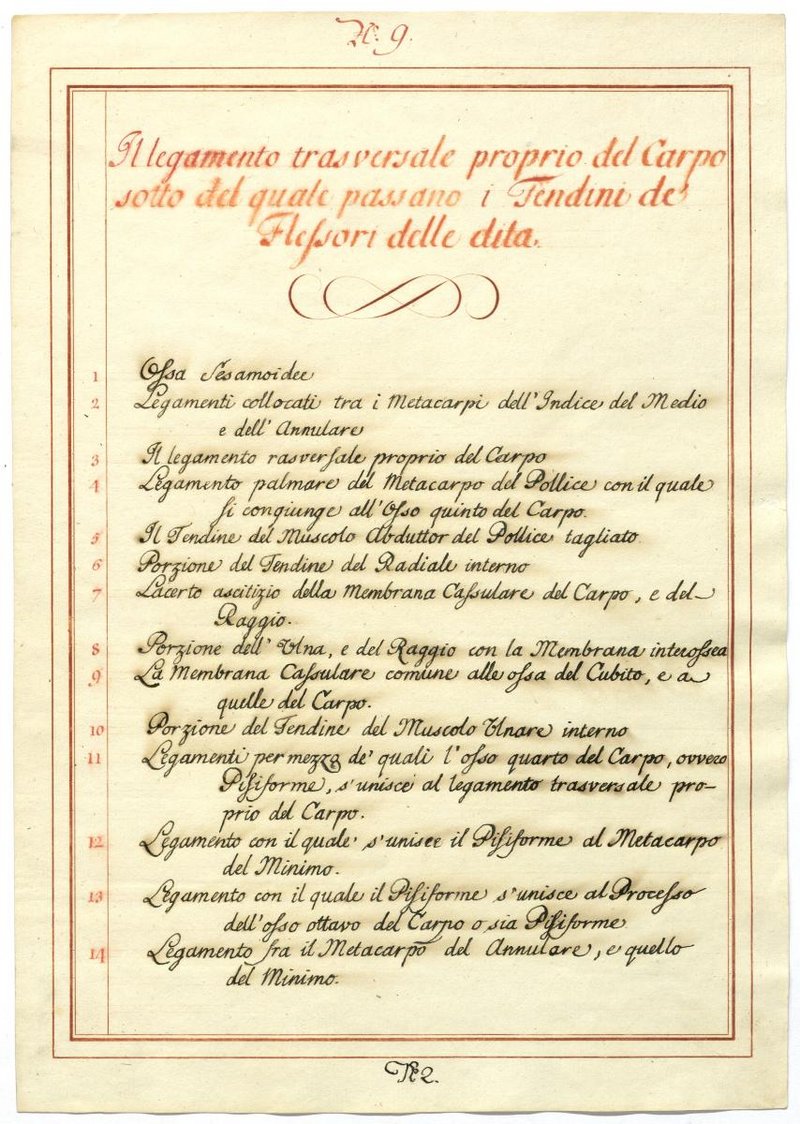 N. 9.
Il legamento trasversale proprio del Carpo
sotto del quale passano i Tendini de'
Flessori delle dita.
1 Ossa Sesamoidee
2 Legamenti collocati tra i Metacarpi dell'Indice del Medio
e dell'Annulare
3 Il legamento rasversale proprio del Carpo
4 Legamento palmare del Metacarpo del Pollice con il quale
si congiunge all'Osso quinto del Carpo.
5 Il Tendine del Muscolo Abduttor del Pollice tagliato
6 Porzione del Tendine del Radiale interno
7 Lacerto ascitizio della Membrana Cassulare del Carpo, e del
Raggio.
8 Porzione dell'Ulna, e del Raggio con la Membrana interossea
9 La Membrana Cassulare comune alle ossa del Cubito, e a
quelle del Carpo.
10 Porzione del Tendine del Muscolo Ulnare interno
11 Legamenti per mezzo de' quali l'osso quarto del Carpo, ovvero
Pisiforme, s'unisce al legamento trasversale pro-
prio del Carpo.
12 Legamento con il quale s'unisce il Pisiforme al Metacarpo
del Minimo.
13 Legamento con il quale il Pisiforme s'unisce al Processo
dell'osso ottavo del Carpo o sia Pisiforme
14 Legamento fra il Metacarpo del Annulare, e quello
del Minimo.
N. 2.